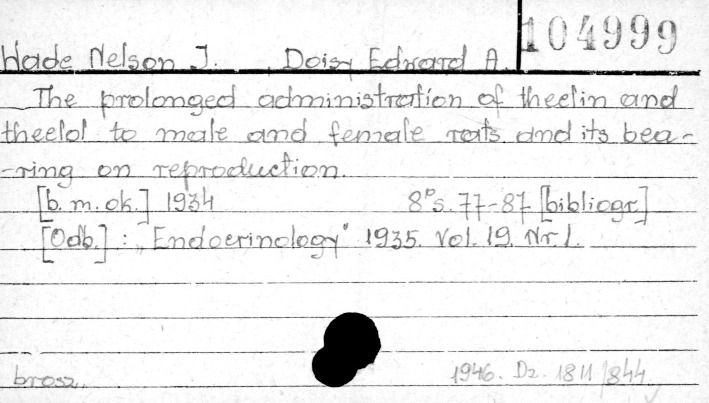 104999
Wade Nelson J. Doisy Edward A.
The prolonged administration of theelin and
theelol to male and female rats and its bea-
-ring on reproduction.
[b. m. ok.] 1934 8° s. 77-87 [bibliogr.]
[Odb.]: "Endocrinology" 1935. Vol. 19. Nr 1.
brosz. 1946. Dz. 1811/844.